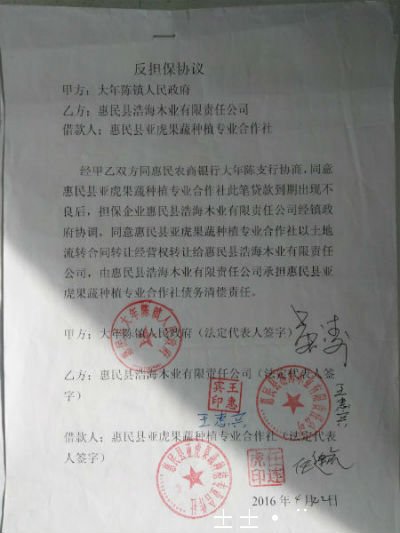 反担保协议
甲方：大年陈镇人民政府
乙方：惠民县浩海木业有限责任公司
借款人：惠民县亚虎果蔬种植专业合作社
经甲乙双方同惠民农商银行大年陈支行协商，同意
惠民县亚虎果蔬种植专业合作社此笔贷款到期出现不
良后，担保企业惠民县浩海木业有限责任公司经镇政
府协调，同意惠民县亚虎果蔬种植专业合作社以土地
流转合同转让经营权转让给惠民县浩海木业有限责任
公司，由惠民县浩海木业有限责任公司承担惠民县亚
虎果蔬种植专业合作社债务清偿责任。
甲方：大年陈镇人民政府（法定代表人签字）
乙方：惠民县浩海木业有限责任公司（法定代表人签
字）
王惠宾印
借款人：惠民县亚虎果蔬种植专业合作社（法定代表
人签字）
惠民县亚虎果蔬种植专业合作社
2016年4月22日